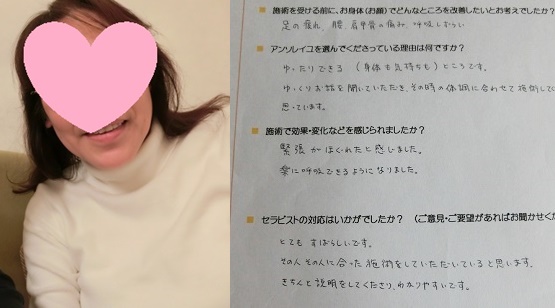 施術を受ける前に、お身体(お顔)でどんなところを改善したいとお考えでしたか?
足の疲れ、腰、肩甲骨の痛み、呼吸しずらい
アンソレイユを選んでくださっている理由は何ですか?
ゆったりできる (身体も気持ちも) ところです。
ゆっくりお話を聞いていただき、その時の体調に合わせて施術して
思っています。
施術で効果・変化などを感じられましたか?
緊張がほぐれたと感じました。
楽に呼吸できるようになりました。
セラピストの対応はいかがでしたか? (ご意見・ご要望があればお聞かせく
とても すばらしいです。
その人その人に合った施術をしていただいていると思います。
きちんと説明をしてくださり、わかりやすいです。